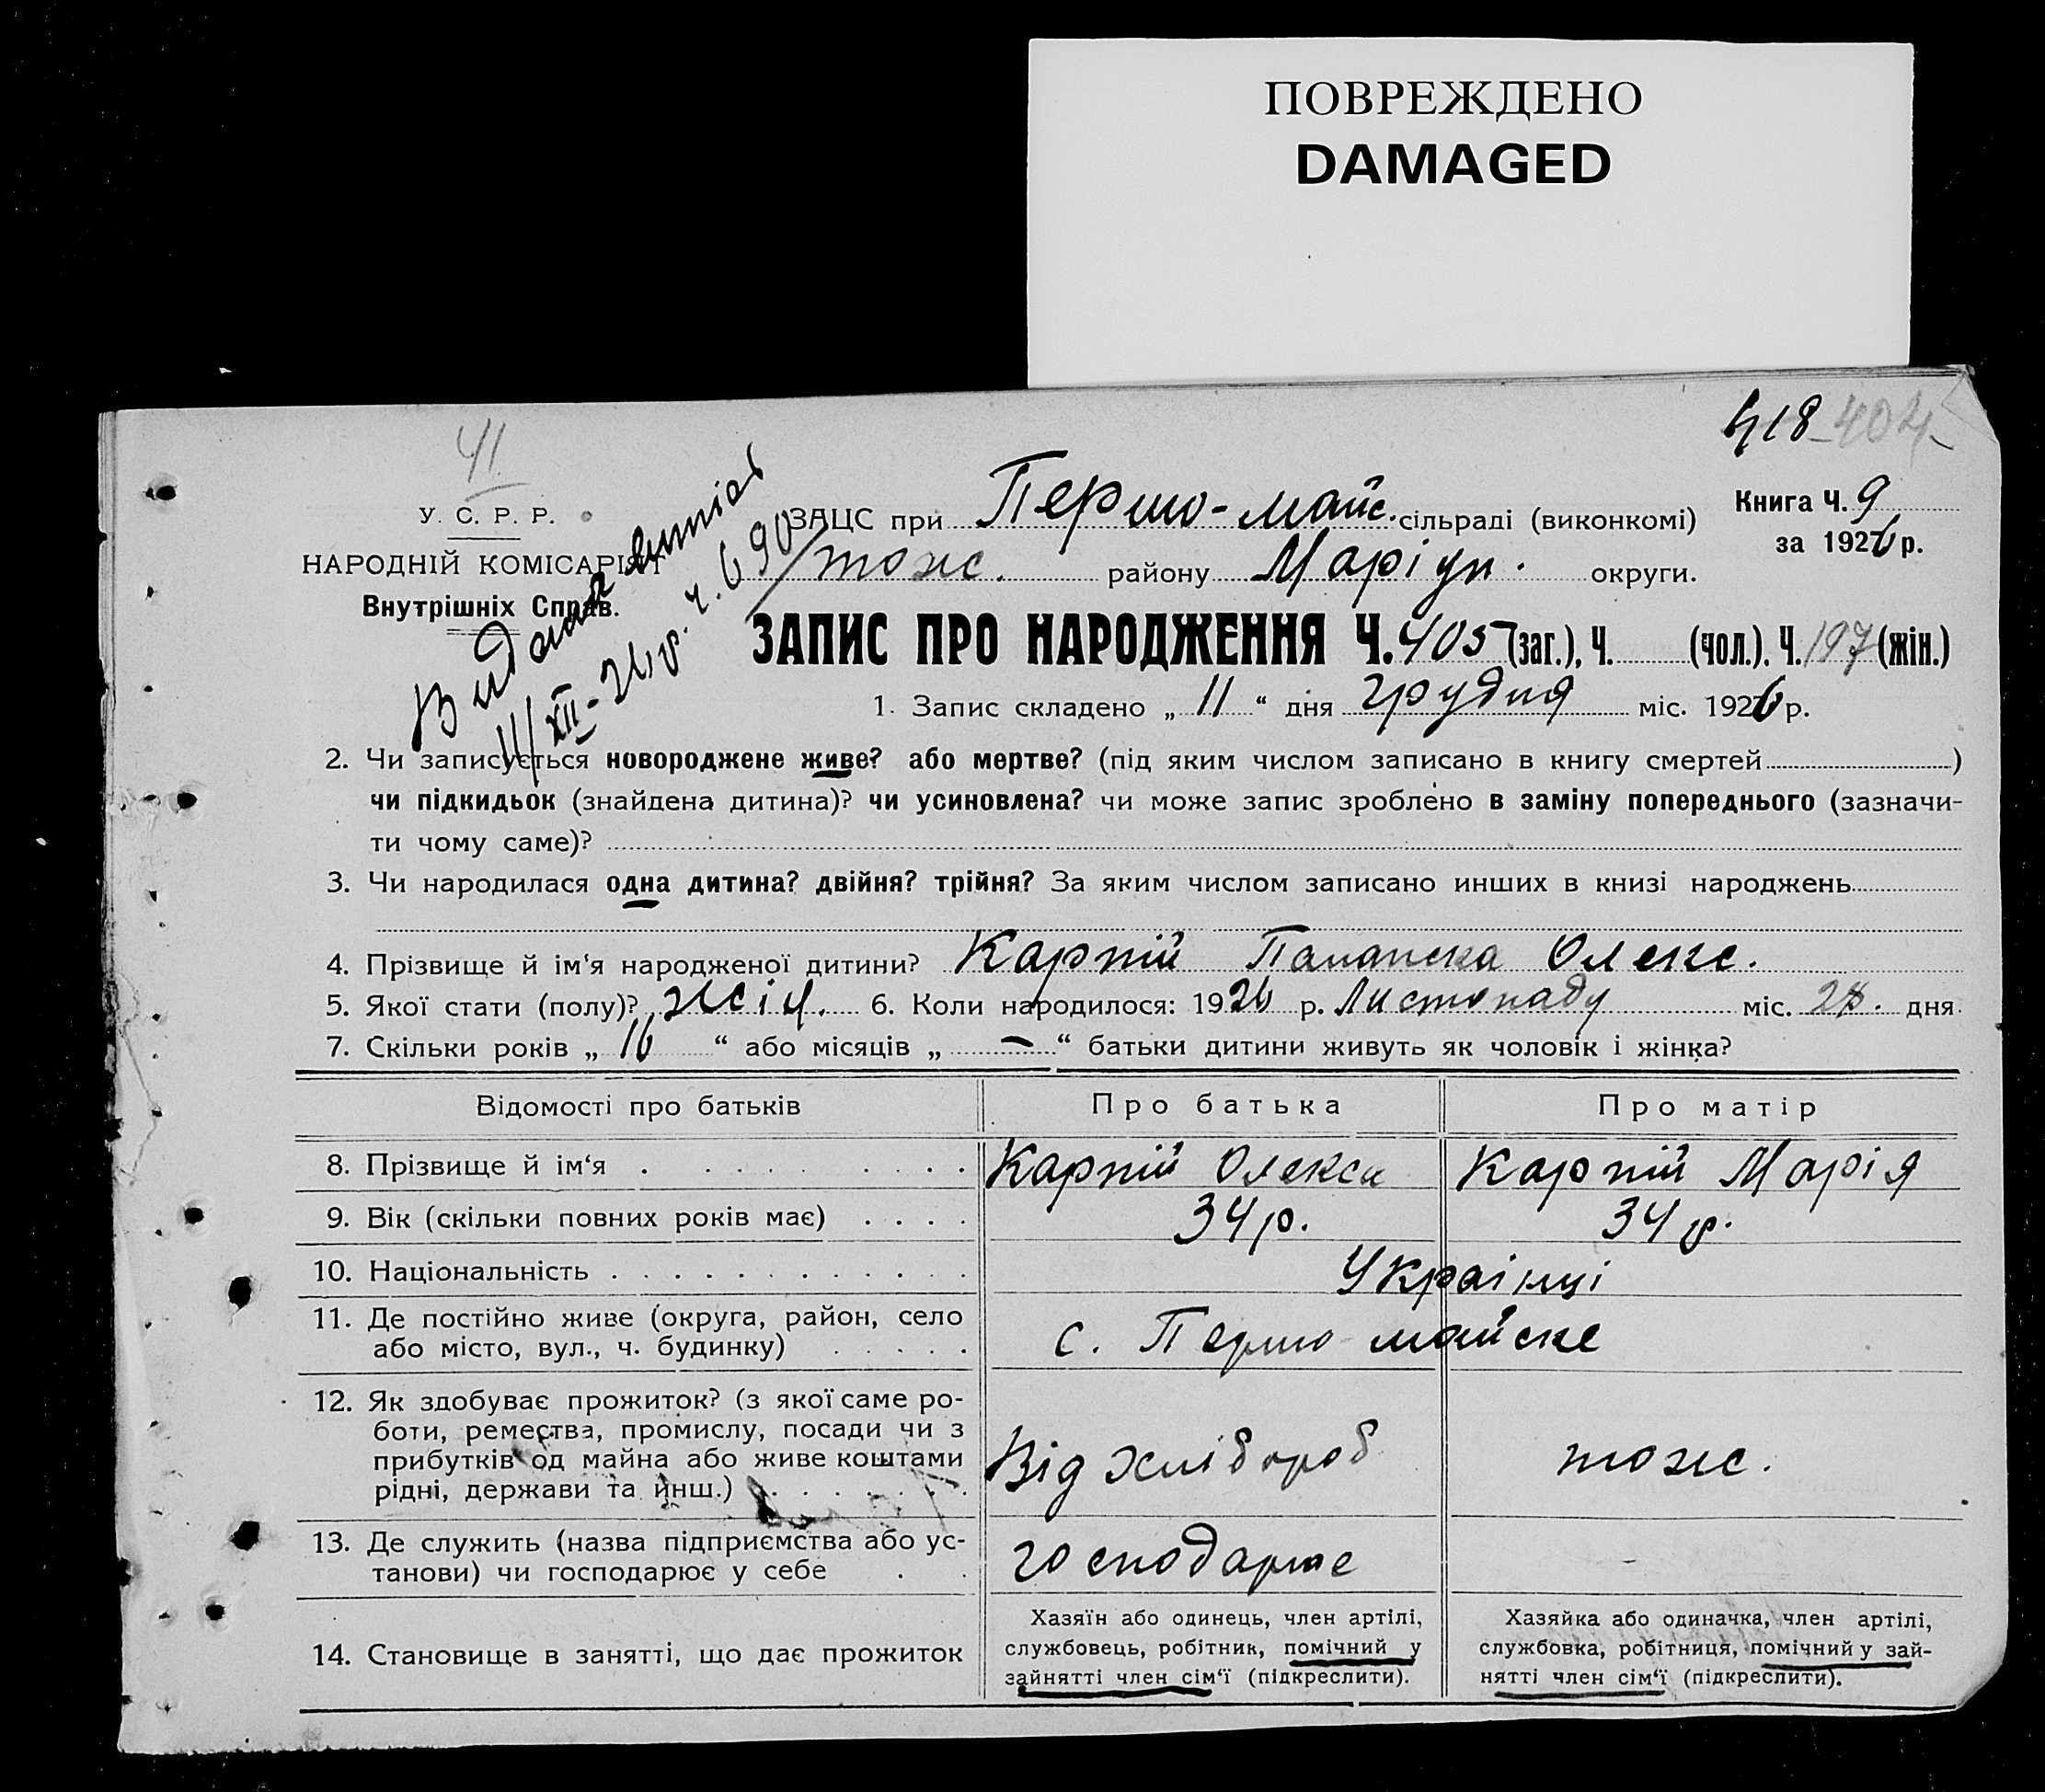 ПОВРЕЖДЕНО
DAMAGED
418 404
41
У. С. Р. Р.
НАРОДНІЙ КОМІСАРІЯТ
Внутрішніх Справ.
Видана витяг
11/XII-26 р. ч. 690
ЗАЦС при Першо-майс. сільраді (виконкомі)
тож. району Маріуп. округи.
Книга Ч. 9
за 1926 р.
ЗАПИС ПРО НАРОДЖЕННЯ Ч. 405 (заг.), Ч. (чол.). Ч. 197 (жін.)
1. Запис складено „ 11 “ дня грудня міс. 1926 р.
2. Чи записується новороджене живе? або мертве? (під яким числом записано в книгу смертей )
чи підкидьок (знайдена дитина)? чи усиновлена? чи може запис зроблено в заміну попереднього (зазначи-
ти чому саме)?
3. Чи народилася одна дитина? двійня? трійня? За яким числом записано инших в книзі народжень
4. Прізвище й ім‘я народженої дитини? Карпій Панапска Олекс.
5. Якої стати (полу)? жін. 6. Коли народилося: 1926 р. Листопаду міс. 28. дня
7. Скільки років „ 16 “ або місяців „ — “ батьки дитини живуть як чоловік і жінка?
Відомості про батьків Про батька Про матір
8. Прізвище й ім‘я Карпій Олекса Карпій Марія
9. Вік (скільки повних років має) 34 р. 34 р.
10. Національність Українці
11. Де постійно живе (округа, район, село
або місто, вул., ч. будинку) с. Першо майске
12. Як здобуває прожиток? (з якої саме ро-
боти, ремества, промислу, посади чи з
прибутків од майна або живе коштами
рідні, держави та инш.) Від хлібороб тож.
13. Де служить (назва підприємства або ус-
танови) чи господарює у себе господарює -
14. Становище в занятті, що дає прожиток
Хазяїн або одинець, член артілі,
службовець, робітник, помічний у
зайнятті член сім‘ї (підкреслити).
Хазяйка або одиначка, член артілі,
службовка, робітниця, помічний у зай-
нятті член сім‘ї (підкреслити).